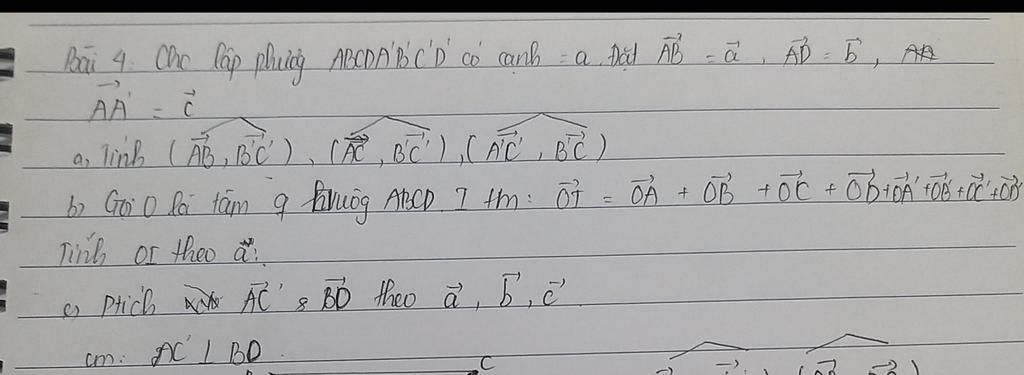 Bài 4: Cho lập phương ABCDA'B'C'D' có cạnh = a. Đặt AB⃗ = a⃗, AD⃗ = b⃗,
AA'⃗ = c⃗
a, Tính (AB⃗, B'C'⃗), (AC⃗, B'C'⃗), (A'C'⃗, B'C⃗)
b, Gọi O là tâm hvuôg ABCD I tm: OI⃗ = OA⃗ + OB⃗ + OC⃗ + OD⃗ + OA'⃗ + OB'⃗ + OC'⃗ + OD'⃗
Tính OI theo a.
c, Ptích AC'⃗ & BD⃗ theo a⃗, b⃗, c⃗
cm: AC' ⊥ BD.
C